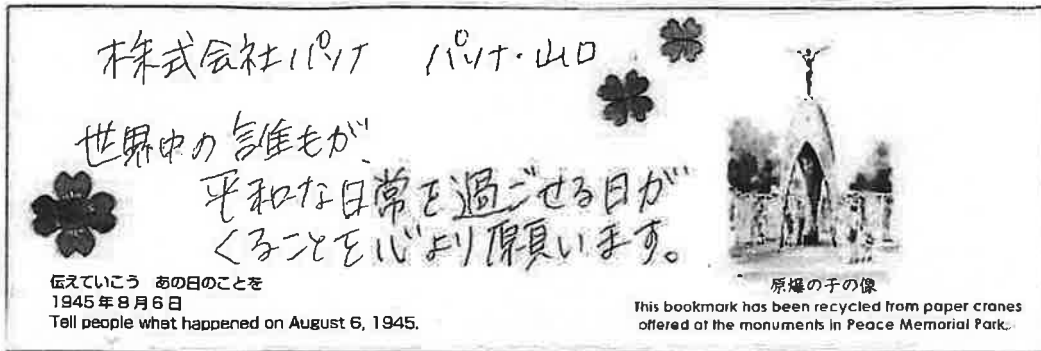 株式会社パソナ　パソナ・山口
世界中の誰もが、
平和な日常を過ごせる日が
くることを心より願います。
伝えていこう　あの日のことを
1945年8月6日
Tell people what happened on August 6, 1945.
原爆の子の像
This bookmark has been recycled from paper cranes
offered at the monuments in Peace Memorial Park.